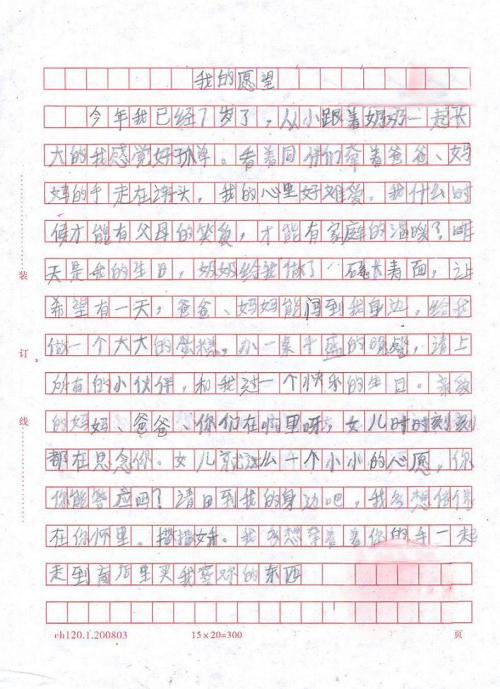 我的愿望
今年我已经7岁了，从小跟着奶奶一起长
大的我感觉好孤单。看着同伴们牵着爸爸、妈
妈的手走在街头，我的心里好难受。我什么时
候才能有父母的笑，才能有家庭的温暖？昨
天是我的生日，奶奶给我做了一碗长寿面，让
希望有一天，爸爸、妈妈能回到我身边，给我
做一个大大的蛋糕，办一桌丰盛的晚餐，请上
所有的小伙伴，和我过一个快乐的生日。亲爱
的妈妈、爸爸、你们在哪里呀，女儿时时刻刻
都在思念你。女儿就这么一个小小的心愿，你
你能答应吗？请回到我的身边吧，我多想
在你怀里。我多想牵着你的手一起
走到商店里买我喜欢的东西
装
订
线
ch120.1.200803
15×20=300
页